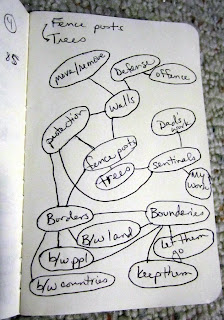 4
85
Fence posts
Trees
move/remove
Defense
offence
Walls
protection
Dad's work
fence posts
trees
sentinals
My work
Borders
Bounderies
B/w land
let them go
b/w ppl
keep them
b/w countries